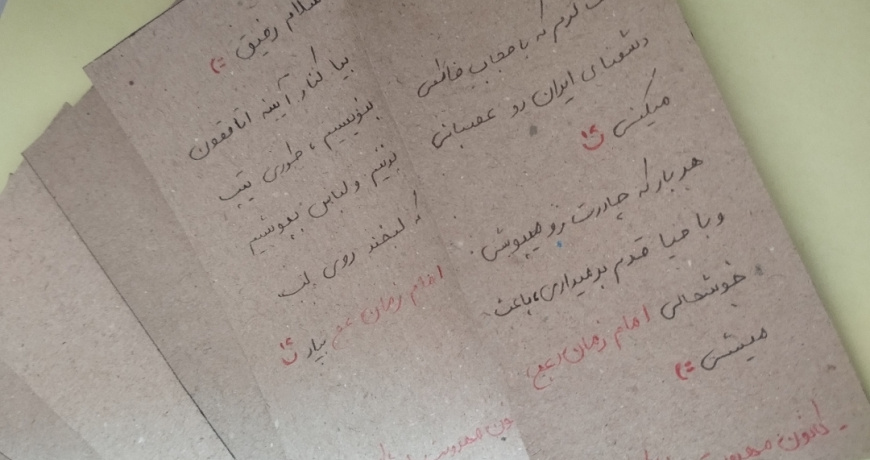 سلام رفیق :)
بیا کنار آینه اتاقمون
بنویسیم، طوری تیپ
بزنیم و لباس بپوشیم
که لبخند روی لب
امام زمان عج بیاد
کنم که با حجاب فاطمی
دشمنای ایران رو عصبانی
میکنی
هر بار که چادرت رو میپوشی
و با حیا قدم برمیداری، باعث
خوشحالی امام زمان (عج)
میشی :)
کانون مهدویت